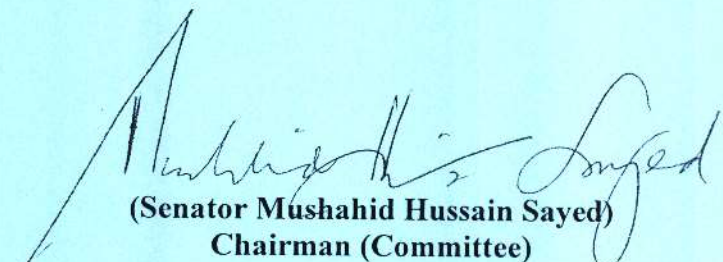 Mushahid Hussain Sayed
(Senator Mushahid Hussain Sayed)
Chairman (Committee)